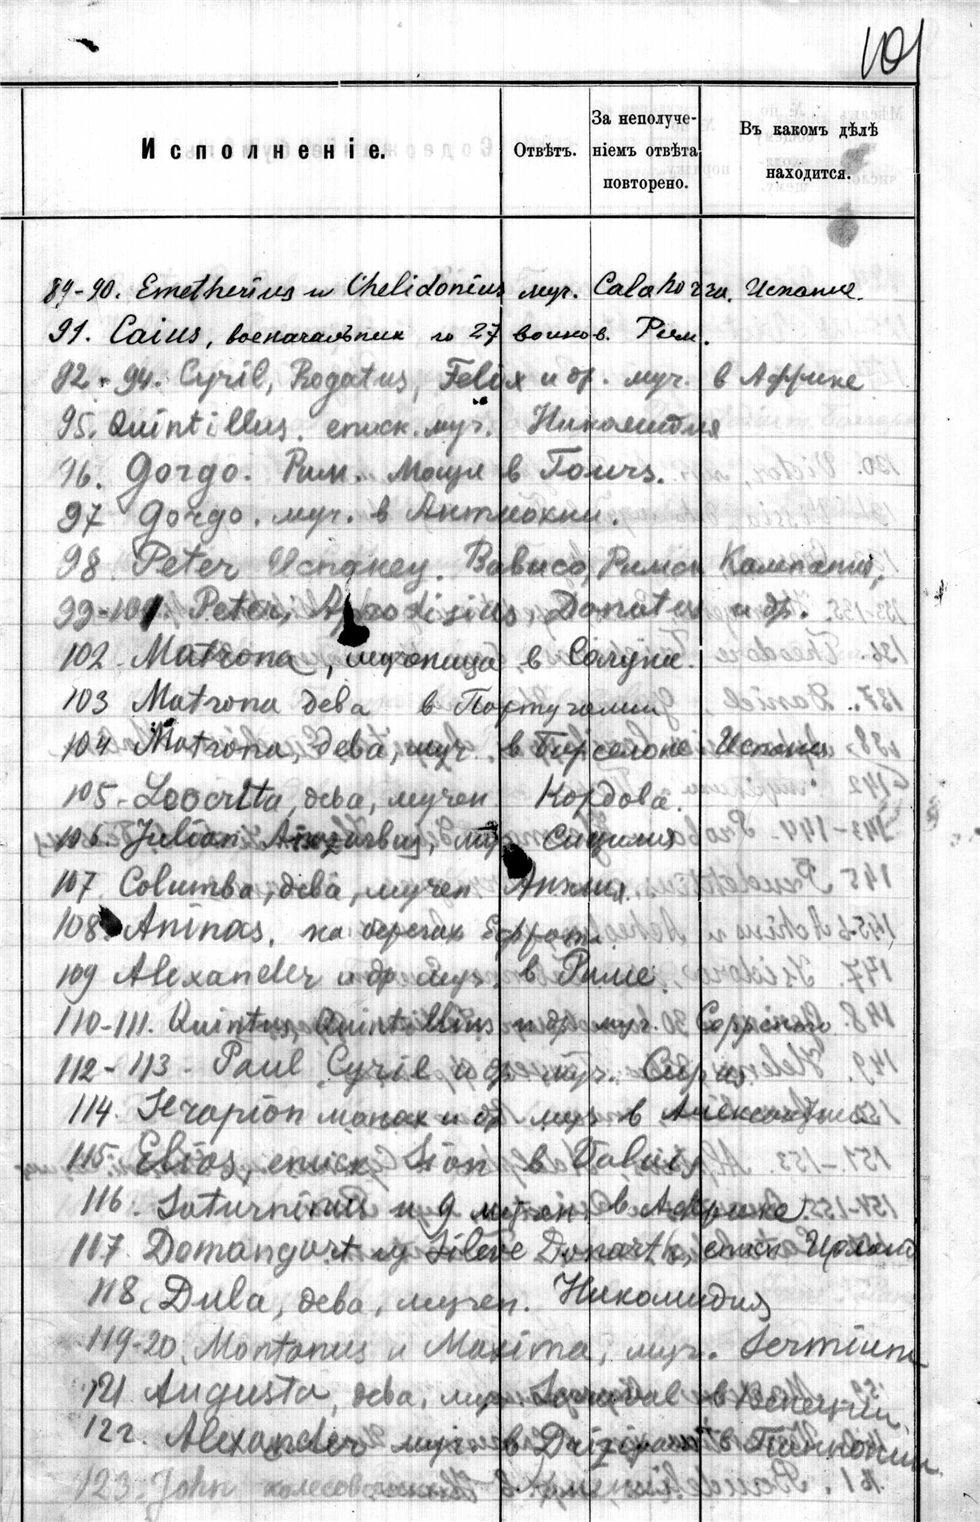 101
Исполненіе.
Отвѣтъ.
За неполуче-
ніемъ отвѣта
повторено.
Въ какомъ дѣлѣ
находится.
89-90. Emetherius и Chelidonius муч. Calahorra. Испание.
91. Caius, военачальник и 27 воинов. Рим.
92-94. Cyril, Rogatus, Felix и др. муч. в Африке
95. Quintillus. еписк. муч. Никомидия
96. Gorgo. Рим. Мощи в Tours.
97 Gorgo. муч. в Антиохии.
98. Peter Кампании,
99-101. Peter, Aprodisius, Donatus и др.
102. Matrona, мученица в Солуни.
103 Matrona дева в Португалии
104. Matrona, дева, муч. в Барселоне Испания
105- Leocrita, дева, мучен. Кордова.
106. Julian Anazarbus, муч. Сицилия
107. Columba, дева, мучен. Англия.
108. Aninas, на берегах Евфрата
109 Alexander и др. муч. в Риме.
110-111. Quintus, Quintillius и др. муч. Сорренто
112-113- Paul Cyril и др. муч. Сирия
114. Serapion монах и др. муч. в Александрии
115. Elias, еписк. Sion в
116. Saturninus и 9 мучен. в Африке
117. Domangart Slieve Donarth, еписк. Ирланд
118. Dula, дева, мучен. Никомидия
119-20. Montanus и Maxima, муч. Sermium
121 Augusta, дева, муч. Serraval в Венеции
122. Alexander муч. в Drizipara в Паннонии
123. John